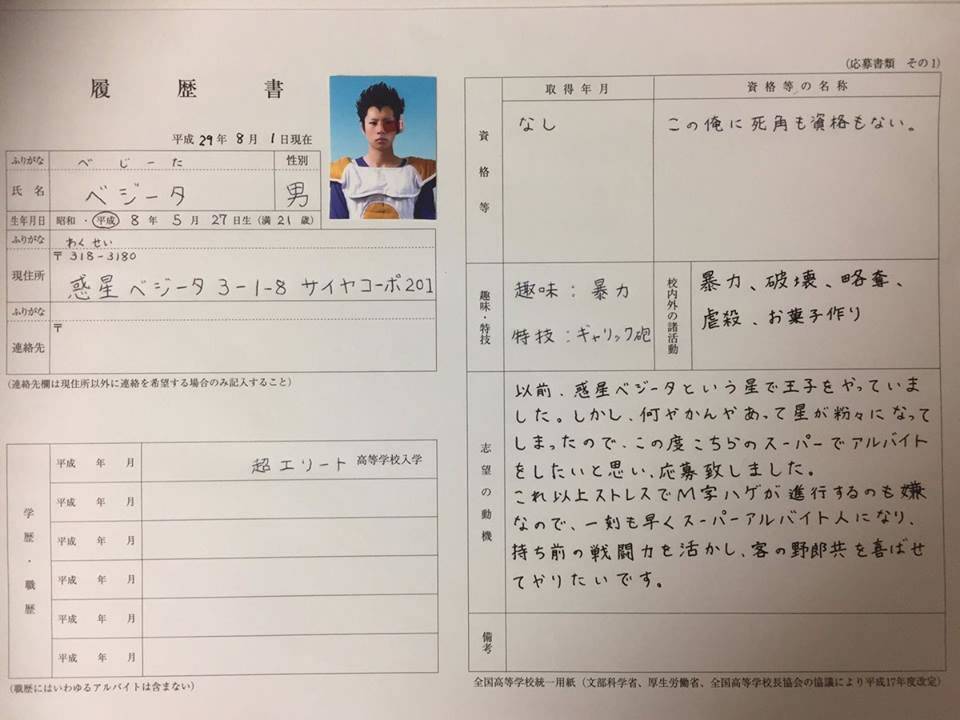 履歴書
平成 29年 8月 1日現在
ふりがな べじーた 性別
氏名 ベジータ 男
生年月日 昭和・平成 8年 5月 27日生(満 21 歳)
ふりがな わくせい
現住所 〒318-3180
惑星ベジータ3-1-8 サイヤコーポ201
ふりがな
連絡先 〒
(連絡先欄は現住所以外に連絡を希望する場合のみ記入すること)
学歴・職歴
平成 年 月 超エリート 高等学校入学
平成 年 月
平成 年 月
平成 年 月
平成 年 月
平成 年 月
(職歴にはいわゆるアルバイトは含まない)
(応募書類 その1)
資格等
取得年月 資格等の名称
なし この俺に死角も資格もない。
趣味・特技
趣味:暴力
特技:ギャリック砲
校内外の諸活動
暴力、破壊、略奪、
虐殺、お菓子作り
志望の動機
以前、惑星ベジータという星で王子をやっていま
した。しかし、何やかんやあって星が粉々になって
しまったので、この度こちらのスーパーでアルバイト
をしたいと思い、応募致しました。
これ以上ストレスでM字ハゲが進行するのも嫌
なので、一刻も早くスーパーアルバイト人になり、
持ち前の戦闘力を活かし、客の野郎共を喜ばせ
てやりたいです。
備考
全国高等学校統一用紙(文部科学省、厚生労働省、全国高等学校長協会の協議により平成17年度改定)